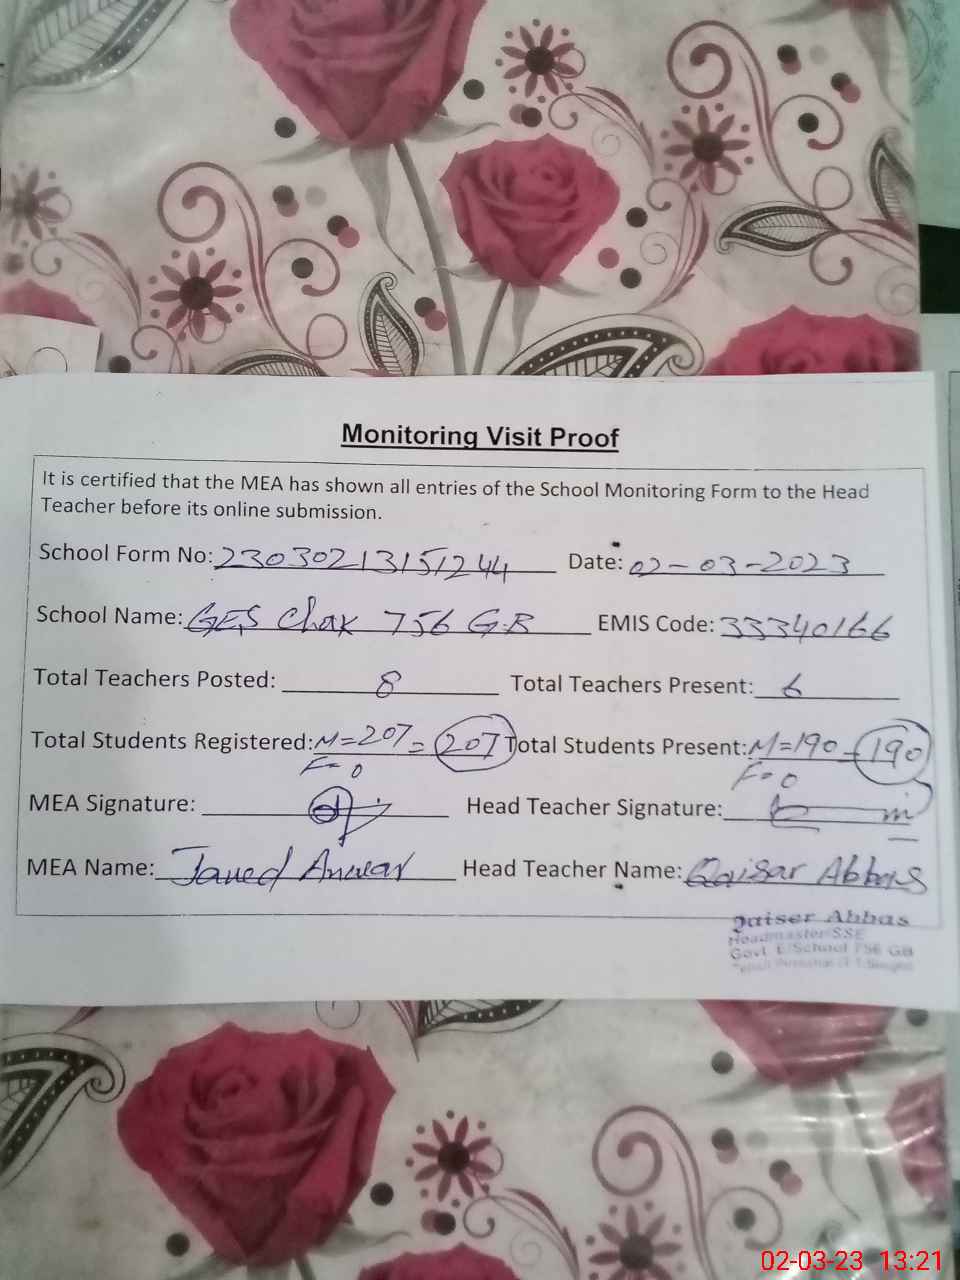 Monitoring Visit Proof
It is certified that the MEA has shown all entries of the School Monitoring Form to the Head
Teacher before its online submission.
School Form No: 23030213151244 Date: 02-03-2023
School Name: GES Chak 756 G.B EMIS Code: 33340166
Total Teachers Posted: 8 Total Teachers Present: 6
Total Students Registered: M=207 = 207 Total Students Present: M=190 = 190
F=0 F=0
MEA Signature: Head Teacher Signature:
MEA Name: Javed Anwar Head Teacher Name: Qaisar Abbas
Qaiser Abbas
Headmaster SSE
Govt. E/School 756 GB
02-03-23 13:21